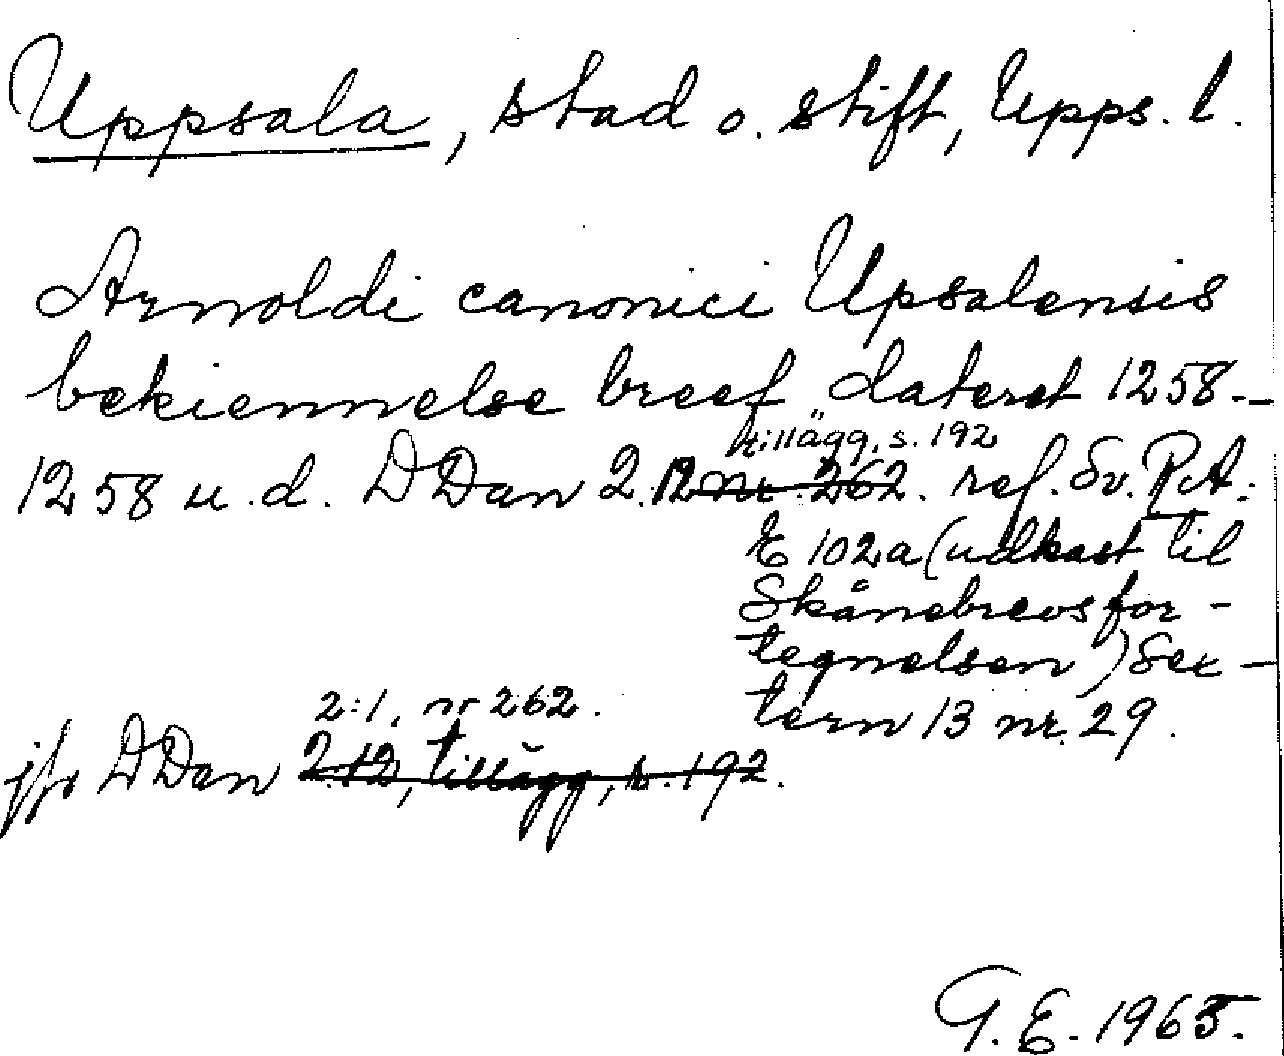 Uppsala, stad o. stift, Upps. l.
Arnoldi canonici Upsalensis
bekiennelse breef dateret 1258.-
tillägg, s. 192
1258 u.d. DDan 2:12 nr. 262. ref. Sv. RA:
E 102a (udkast til
Skånebrevsfor-
tegnelsen) Sex-
tern 13 nr. 29.
2:1, nr 262.
jfr DDan 2:12, tillägg, s. 192.
G.E. 1965.